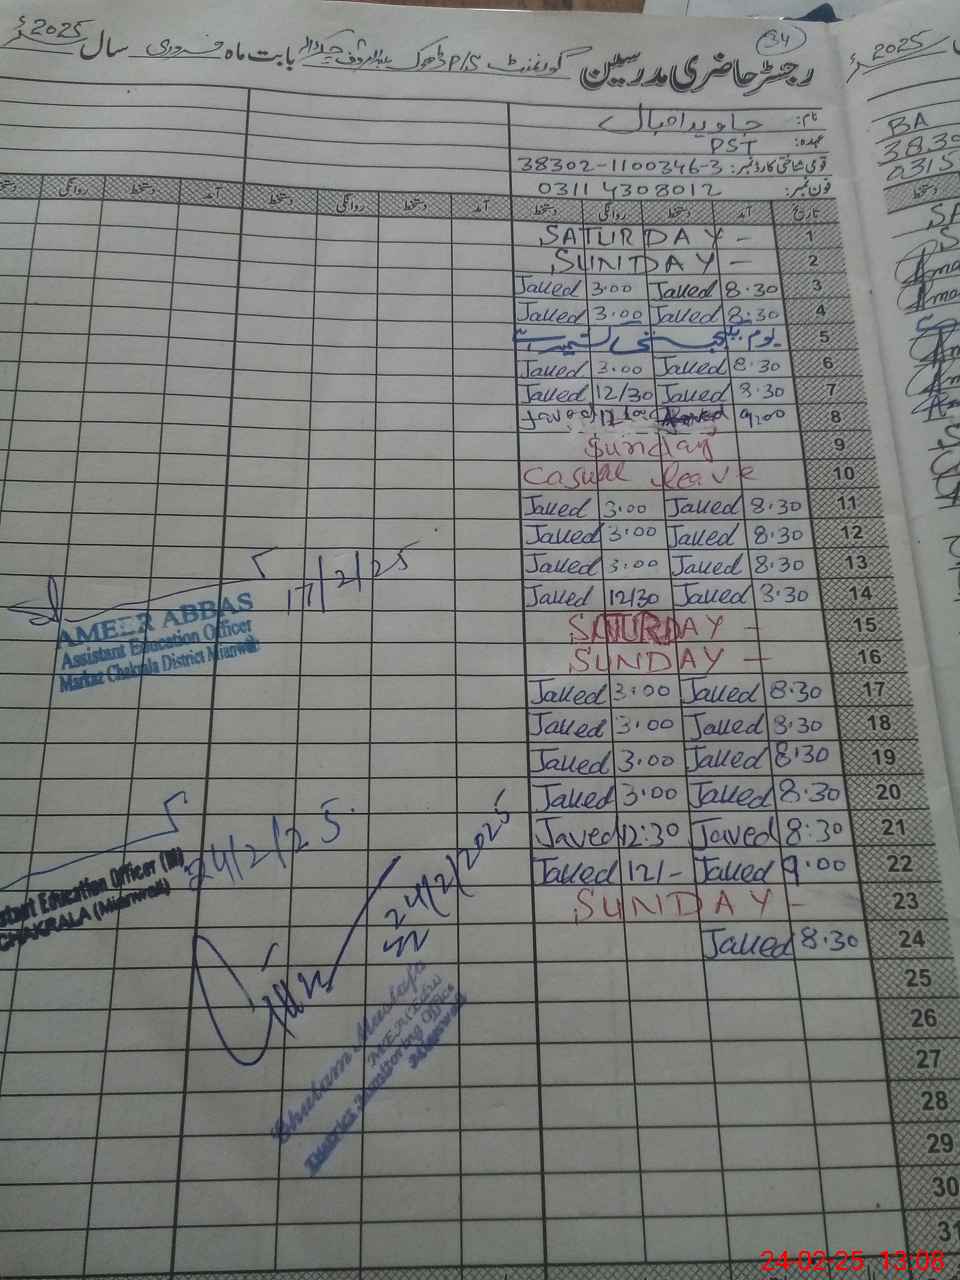 34
رجسٹر حاضری مدرسین گورنمنٹ P/S ڈھوک بابت ماہ فروری سال 2025ء
2025ء
نام: جاوید اقبال
عہدہ: PST
قومی شناختی کارڈ نمبر: 38302-1100346-3
فون نمبر: 0311 4308012
BA
3830
0315
تاریخ آمد دستخط روانگی دستخط آمد دستخط روانگی دستخط آمد دستخط روانگی
دستخط
1 SATURDAY -
2 SUNDAY -
3 8.30 Javed 3.00 Javed
4 8.30 Javed 3.00 Javed
5 یوم یکجہتی کشمیر
6 8.30 Javed 3.00 Javed
7 8.30 Javed 12/30 Javed
8 9.00 Javed
9 Sunday
10 Casual leave
11 8.30 Javed 3.00 Javed
12 8.30 Javed 3.00 Javed
13 8.30 Javed 3.00 Javed
14 8.30 Javed 12/30 Javed
15 SATURDAY -
16 SUNDAY -
17 8.30 Javed 3.00 Javed
18 8.30 Javed 3.00 Javed
19 8.30 Javed 3.00 Javed
20 8.30 Javed 3.00 Javed
21 8:30 Javed 12:30 Javed
22 9.00 Javed 12/- Javed
23 SUNDAY -
24 8.30 Javed
25
26
27
28
29
30
31
17/2/25
AMEER ABBAS
Assistant Education Officer
Markaz Chakrala District Mianwali
24/2/25
stant Education Officer (M)
CHAKRALA (Mianwali)
24/2/2025
Ghulam Mustafa
MEA
District Monitoring Office
Mianwali
24-02-25 13:08